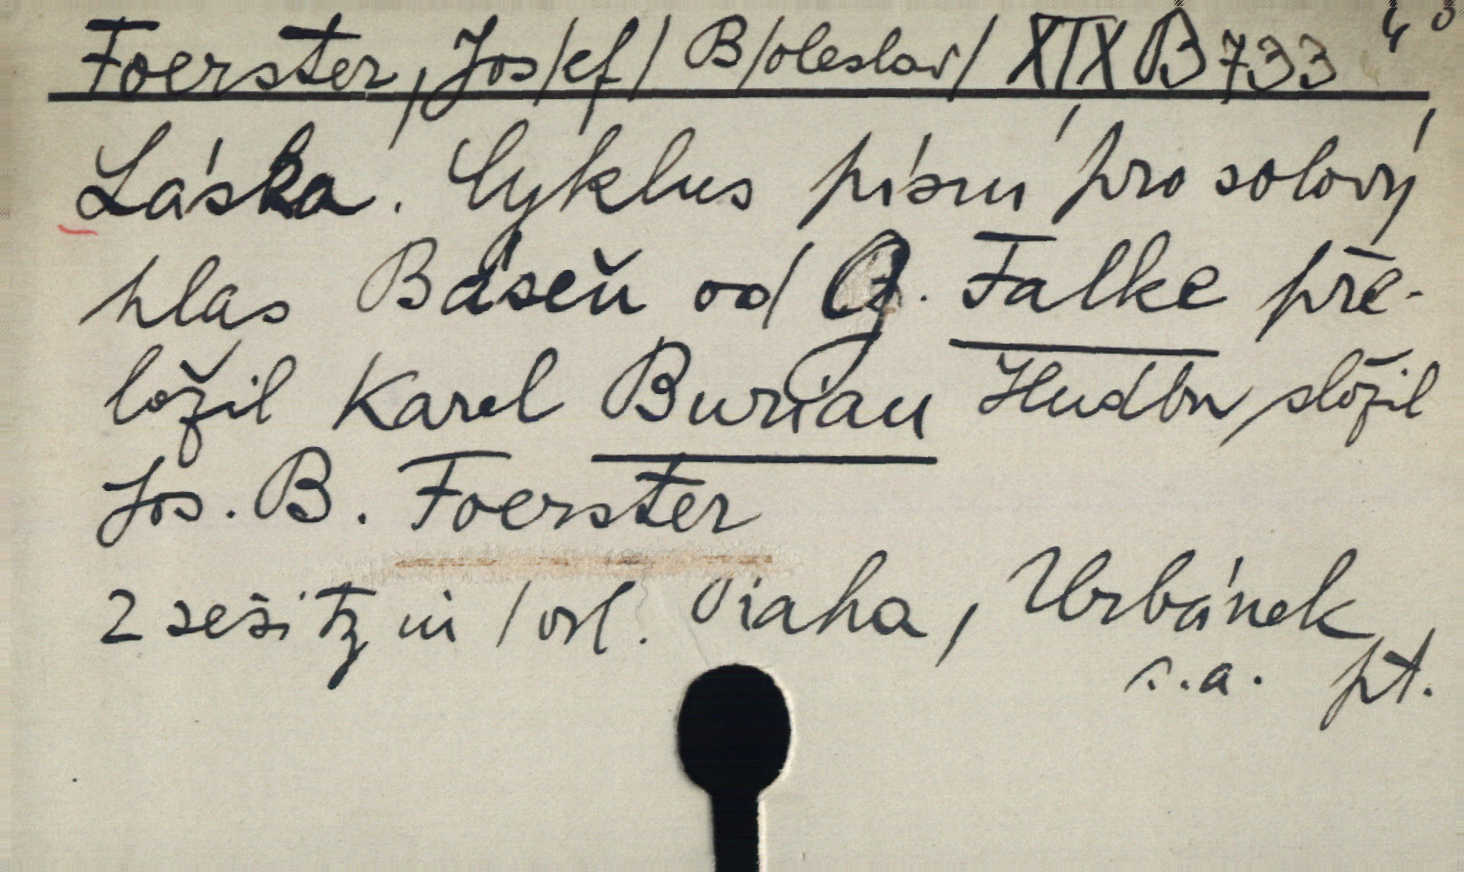 Foerster, Jos/ef/ B/oleslav/ XIX B 733 4°
Láska. Cyklus písní pro solový
hlas Báseň od G. Falke pře-
ložil Karel Burian Hudbu složil
Jos. B. Foerster
2 sešity in 1 vol. Praha, Urbánek
s.a. pt.